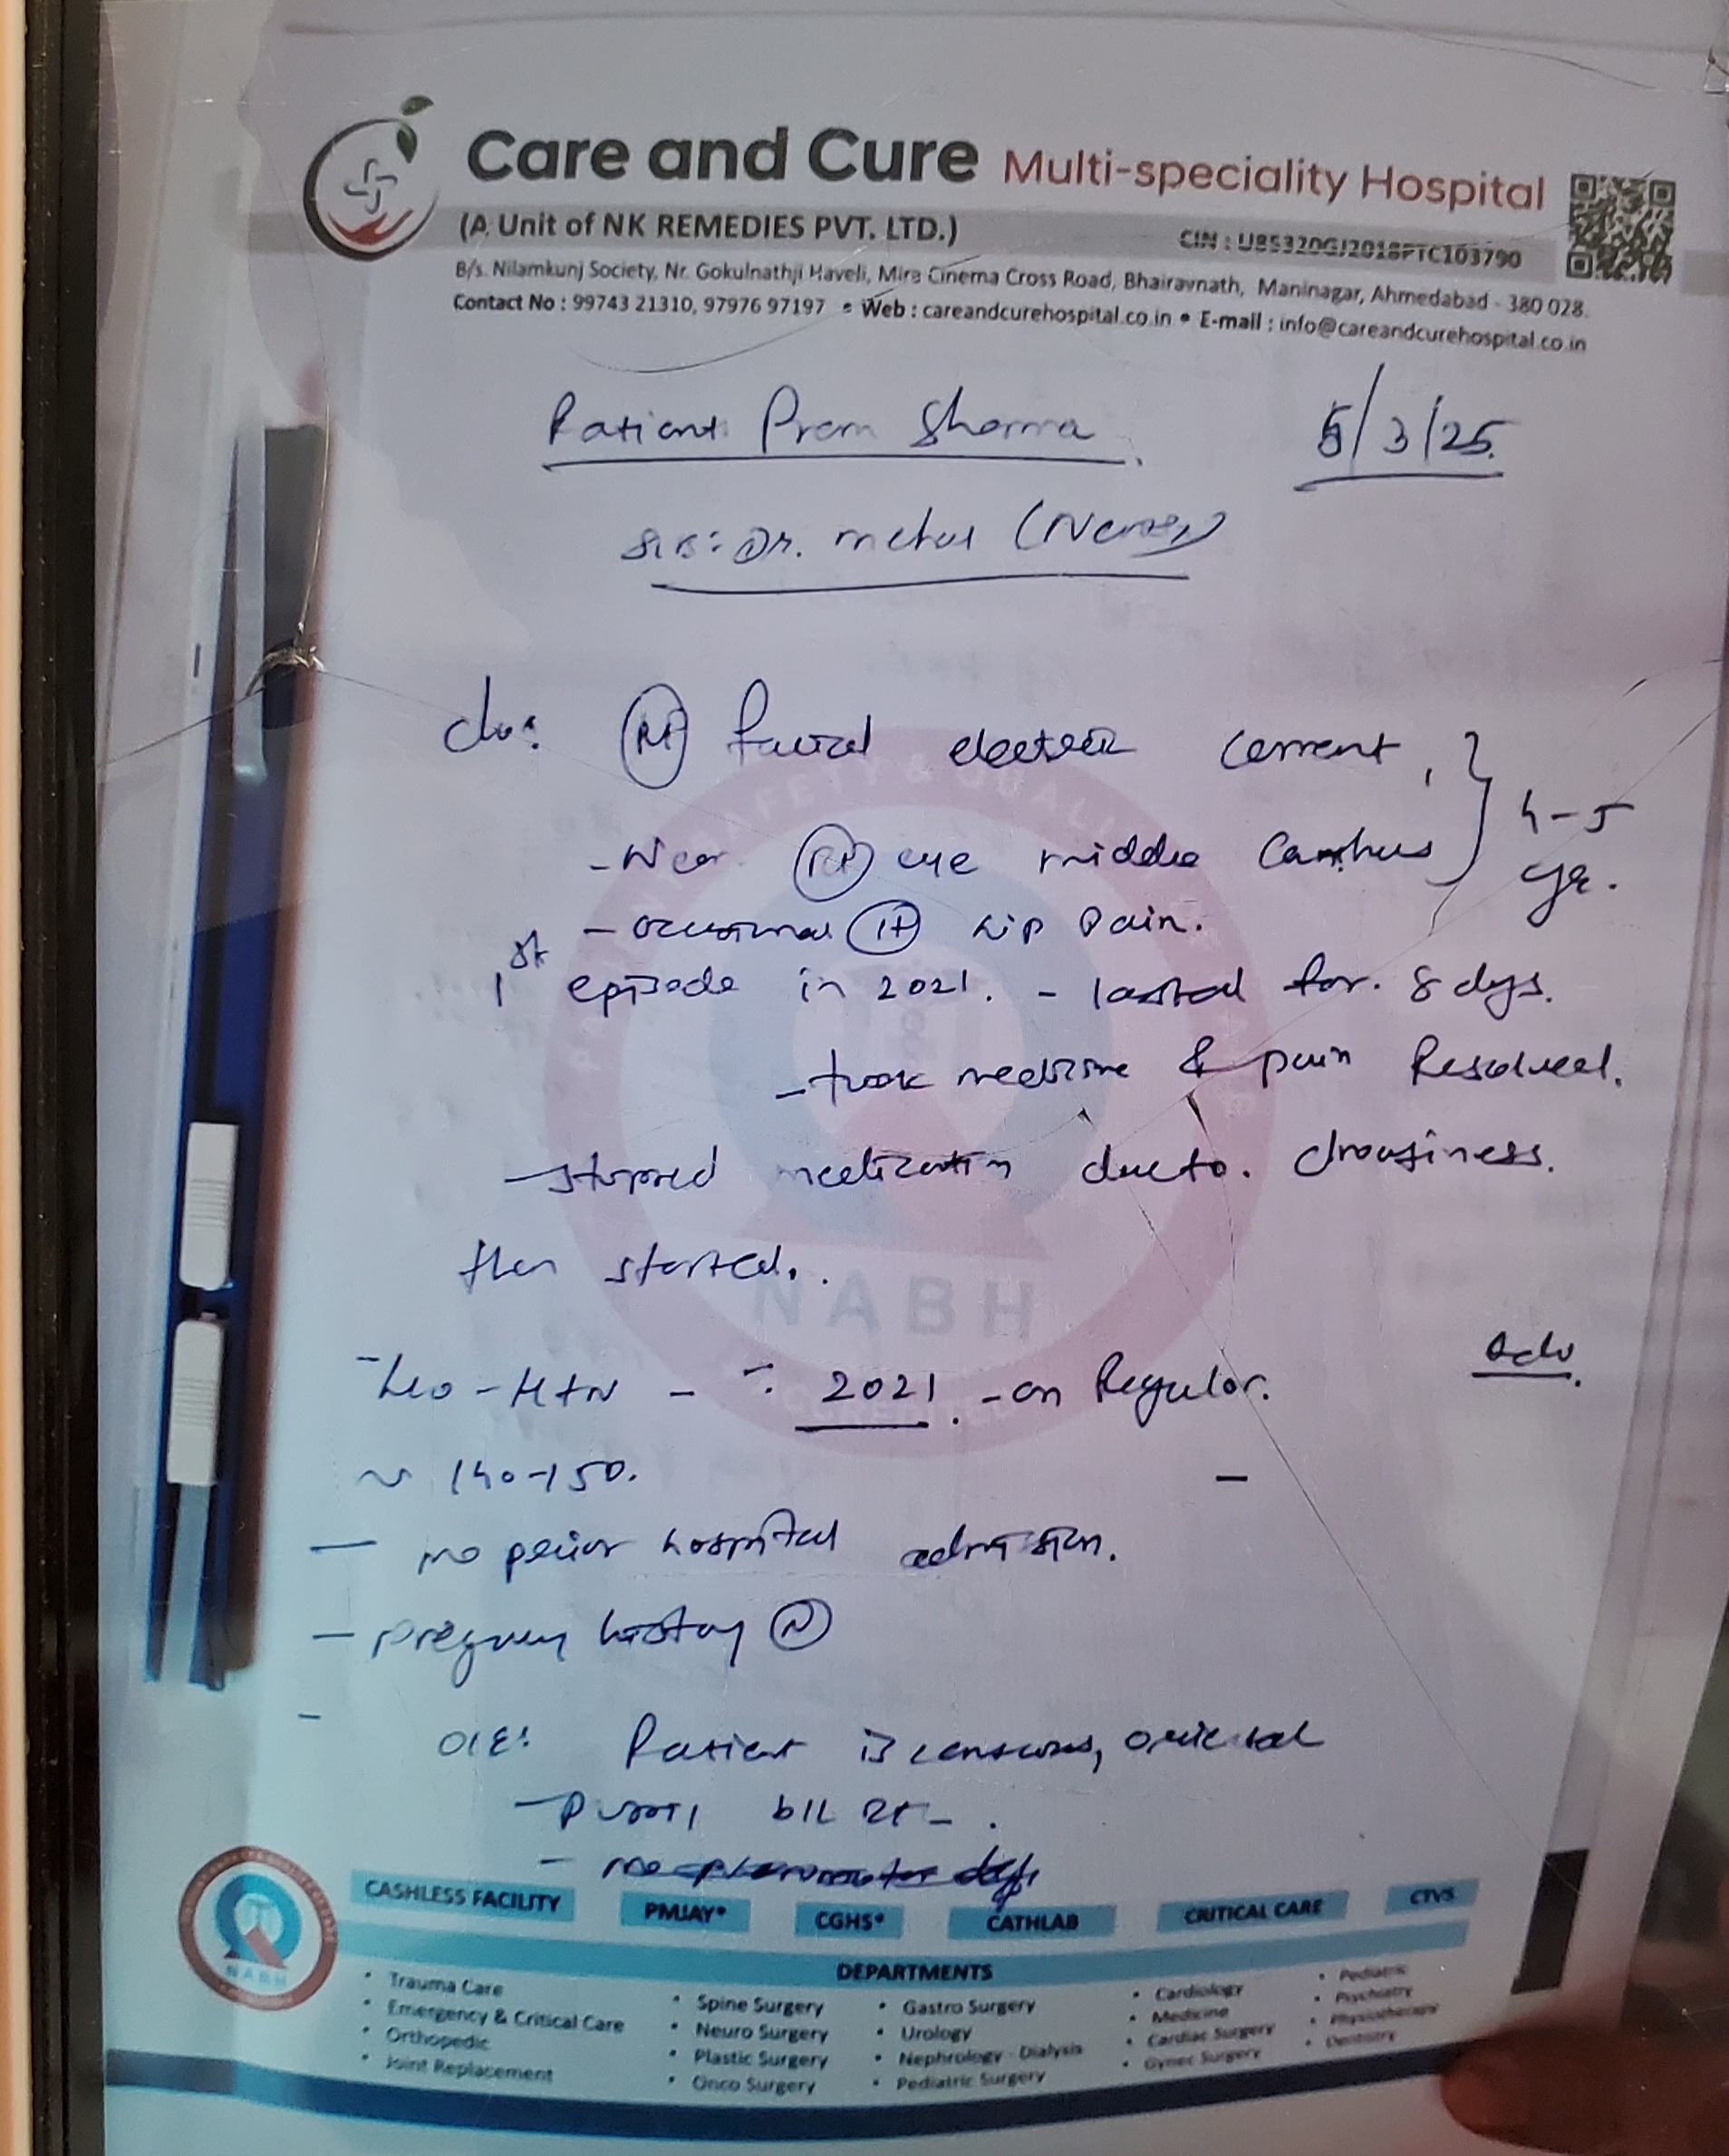 Care and Cure Multi-speciality Hospital
(A Unit of NK REMEDIES PVT. LTD.)
CIN : U85320GJ2018PTC103790
B/s. Nilamkunj Society, Nr. Gokulnathji Haveli, Mira Cinema Cross Road, Bhairavnath, Maninagar, Ahmedabad - 380 028.
Contact No : 99743 21310, 97976 97197 • Web : careandcurehospital.co.in • E-mail : info@careandcurehospital.co.in
Patient Prem Sharma. 5/3/25.
S/B: Dr. mehul
c/o: Rt facial electric current,
- Near Rt eye middle canthus } 4-5 yr.
- occasional Rt lip pain.
1st episode in 2021. - lasted for. 8 dys.
- took medicine & pain Resolved.
- stopped medication due to. drowsiness.
then started..
- H/o - HTN - 2021. - on Regular.
Adv.
~ 140-150.
- no prior hospital admission.
- pregnancy history N
O/E: Patient is conscious, oriented
- b/L
PATIENT SAFETY & QUALITY
NABH
CASHLESS FACILITY PMJAY* CGHS* CATHLAB CRITICAL CARE CTVS
NABH
DEPARTMENTS
• Trauma Care
• Emergency & Critical Care
• Orthopedic
• Joint Replacement
• Spine Surgery
• Neuro Surgery
• Plastic Surgery
• Onco Surgery
• Gastro Surgery
• Urology
• Nephrology - Dialysis
• Pediatric Surgery
• Cardiology
• Medicine
• Cardiac Surgery
• Gynec Surgery
• Pediatric
• Psychiatry
• Physiotherapy
• Dentistry